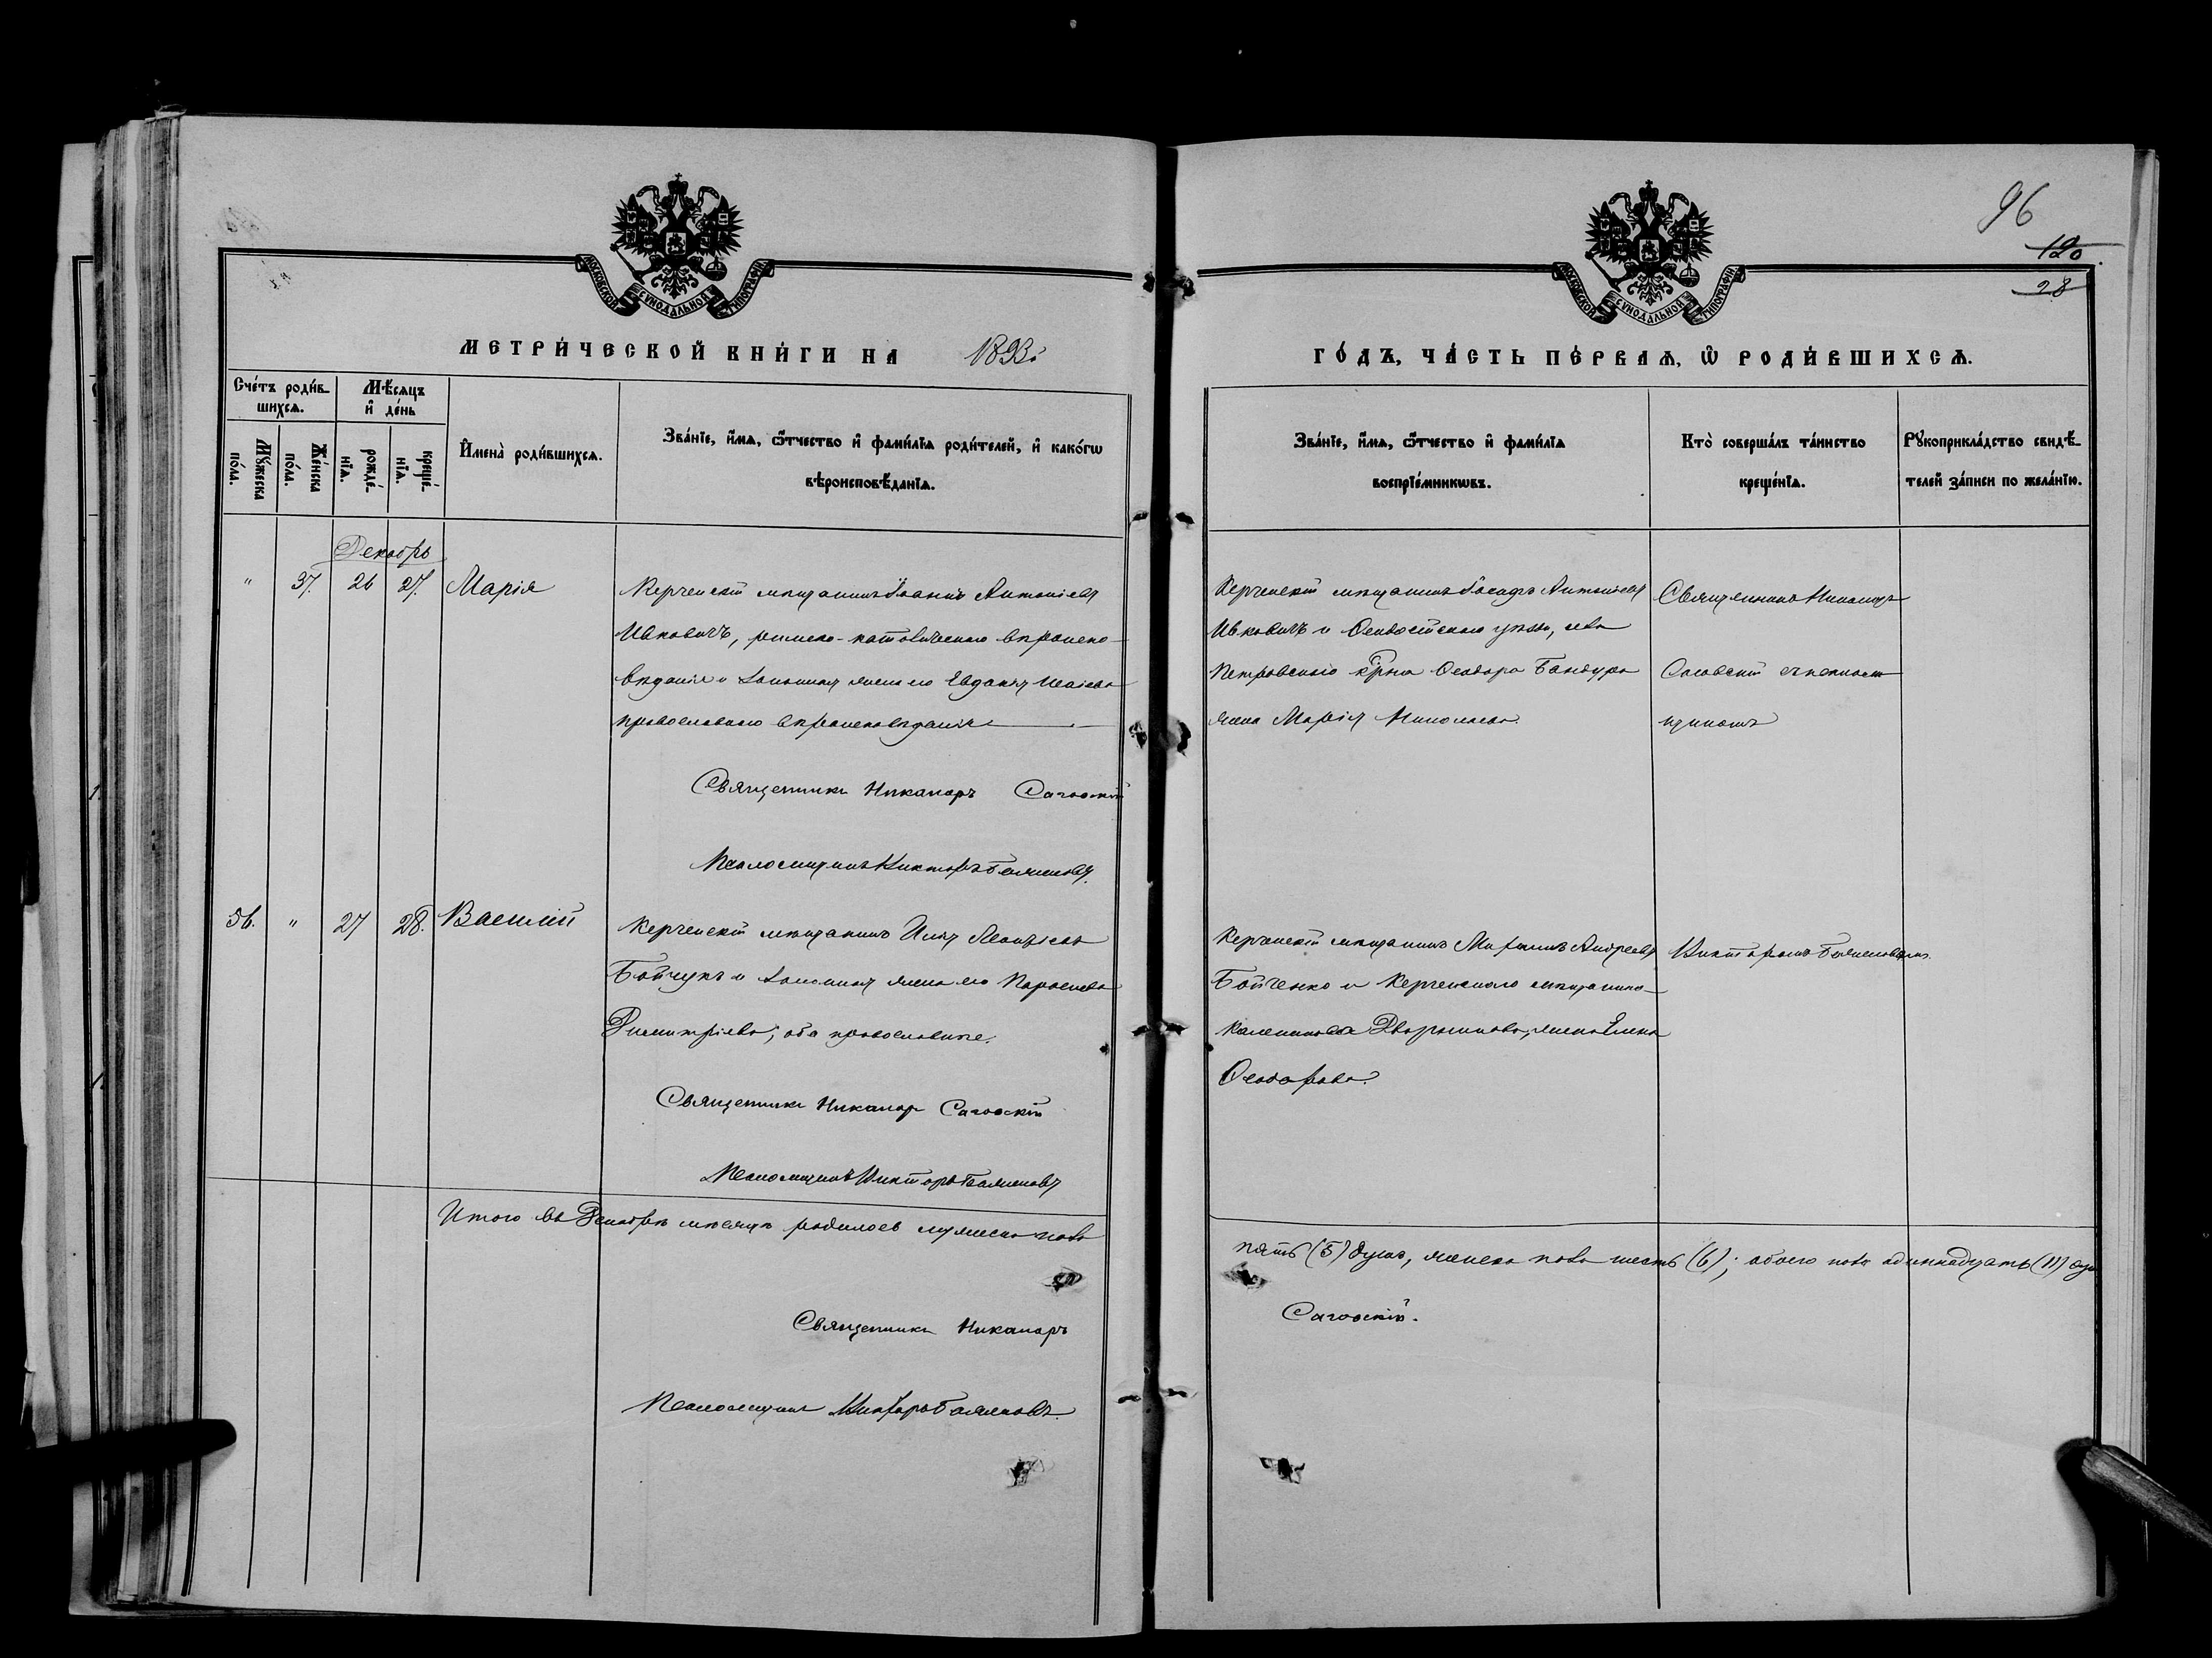 96
120
28
МОСКОВСКОЙ СѴНОДАЛЬНОЙ ТИПОГРАФІИ
МОСКОВСКОЙ СѴНОДАЛЬНОЙ ТИПОГРАФІИ
МЕТРИ́ЧЕСКОЙ КНИ́ГИ НА 1893
ГО́ДЪ, ЧА́СТЬ ПЕ́РВАѦ, Ѿ РОДИ́ВШИХСѦ.
Сче́тъ роди́в-
шихсѧ.
Мꙋ́жеска по́ла.
Же́нска по́ла.
Мѣ́сѧцъ и҆ де́нь
рожде́-
нїѧ.
креще́-
нїѧ.
И҆мена̀ роди́вшихсѧ.
Зва́нїе, и҆́мѧ, ѻ҆́тчество и҆ фами́лїѧ роди́телей, и҆ како́гѡ
вѣроисповѣ́данїѧ.
Зва́нїе, и҆́мѧ, ѻ҆́тчество и҆ фами́лїѧ
воспрїе́мникѡвъ.
Кто̀ соверша́лъ та́инство
креще́нїѧ.
Рꙋкоприкла́дство свидѣ́-
телей за́писи по жела́нїю.
Декабрь
" 37. 26 27. Марія
Керченскій мѣщанинъ Іоаннъ Антоніевъ
Ивковичъ, римско-католическаго вѣроиспо-
вѣданія и законная жена его Евдокія
православнаго вѣроисповѣданія
Священникъ Никаноръ Саговскій
Псаломщикъ Викторъ Баженовъ.
Керченскій мѣщанинъ Іосифъ Антоніевъ
Ивковичъ и Ѳеодосійскаго уѣзда, села
Петровскаго Ѳеодора Бандуры
жена Марія Николаева.
Священникъ Никаноръ
Саговскій съ псалом-
щикомъ
56. " 27 28. Василій
Керченскій мѣщанинъ Илія Леонтіевъ
Бойчукъ и законная жена его Параскева
Димитріева; оба православные.
Священникъ Никаноръ Саговскій
Псаломщикъ Викторъ Баженовъ
Керченскій мѣщанинъ Андреевъ
Бойченко и Керченскаго мѣщанина
Дворникова, жена Елена
Ѳеодорова.
Викторомъ Баженовымъ.
Итого въ Декабрѣ мѣсяцѣ родилось мужеска пола
пять (5) душъ, женска пола шесть (6); обоего пола одиннадцать (11) душъ
Священникъ Никаноръ
Саговскій.
Псаломщикъ Викторъ Баженовъ.